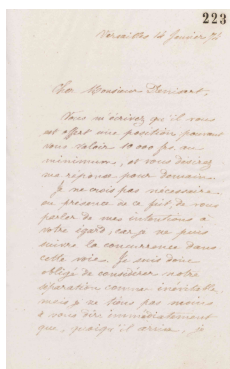 223
Versailles 14 Janvier 78
Cher Monsieur Denisart,
Vous m'écrivez qu'il vous
est offert une position pouvant
vous valoir 10 000 frs au
minimum, et vous désirez
ma réponse pour demain.
Je ne crois pas nécessaire
en présence de ce fait, de vous
parler de mes intentions à
votre égard, car je ne puis
suivre la concurrence dans
cette voie. Je suis donc
obligé de considérer notre
séparation comme inévitable
mais je ne tiens pas moins
à vous dire immédiatement
que, quoiqu'il arrive, je